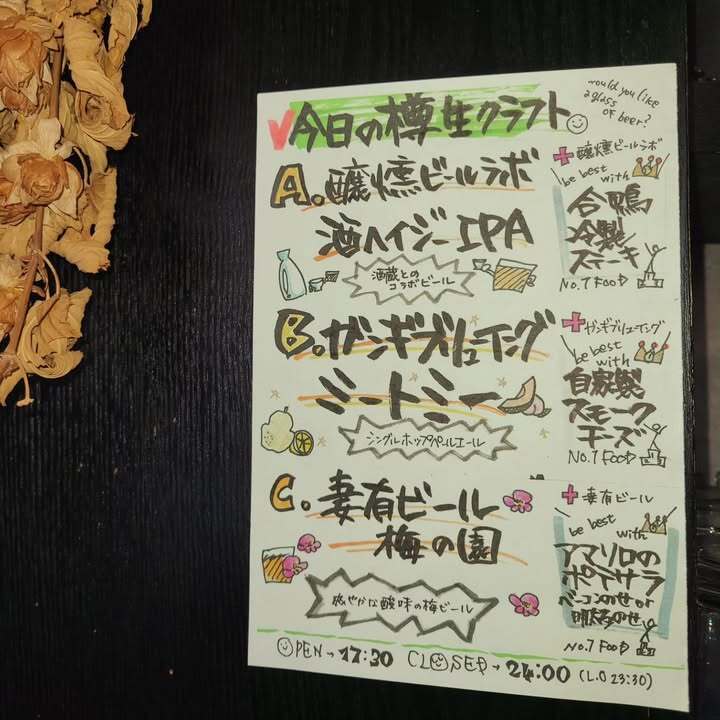 今日の樽生クラフト
would you like
a glass
of beer?
A. 醸燻ビールラボ
酒ヘイジーIPA
酒蔵との
コラボビール
+醸燻ビールラボ
be best
with
合鴨
冷製
ステーキ
No.1 FOOD
B. ガンギブリューイング
ミートミー
シングルホップペールエール
+ガンギブリューイング
be best
with
自家製
スモーク
チーズ
No.1 FOOD
C. 妻有ビール
梅の園
爽やかな酸味の梅ビール
+妻有ビール
be best
with
アマゾロの
ポテサラ
ベーコンのせ or
明太のせ
No.1 FOOD
OPEN→17:30 CLOSED→24:00 (L.O 23:30)